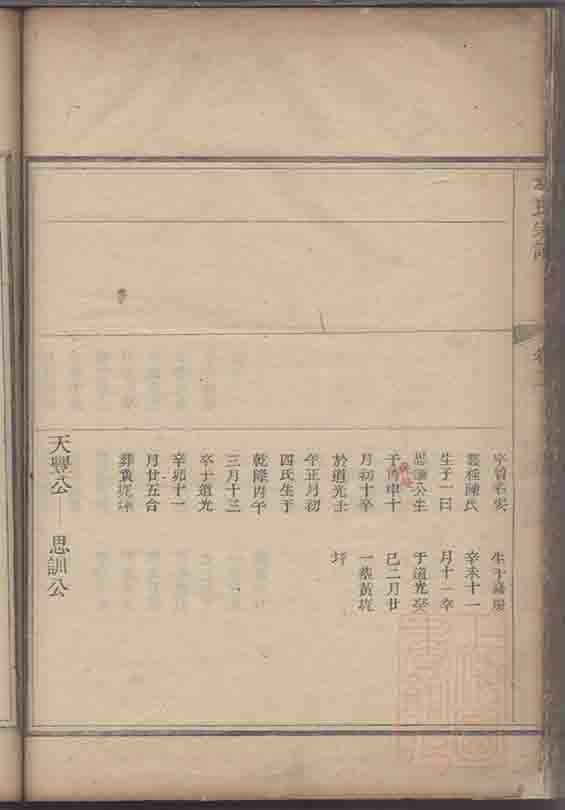 氏宗譜
卷
卒曾右安
葬程陳氏
生子一曰
思論公生
子丙申十
月初十卒
於道光壬
午正月初
四氏生于
乾隆丙午
三月十三
卒于道光
辛卯十一
月廿五合
葬黃坭
生于嘉慶
辛未十一
月十一卒
于道光癸
巳二月廿
一葬黃坭
坪
天豐公——思訓公